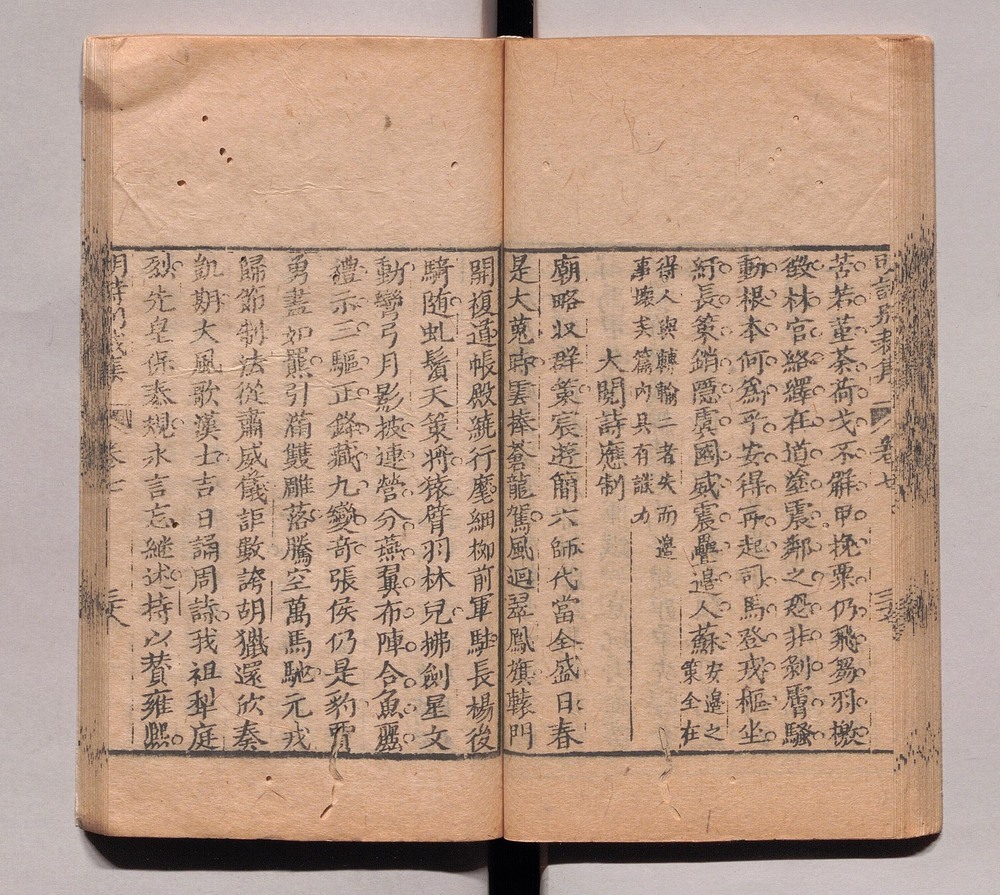 苦若菫荼荷戈不解甲挽粟仍飛芻羽檄
發林宫絡繹在道塗震鄰之恐非剝膚騷
動根本何爲乎安得再起司馬登戎樞坐
紓長策銷隱虞國威震疊邉人蘇安邉之策全在
得人與轉輸二者失而邉
事壞矣篇内具有談力
大閱詩應制
廟略収群策宸遊簡六師代當全盛日春
是大蒐時雲捧蒼龍駕風迴翠鳳旗轅門
開復道帳殿繞行麾細柳前軍駐長楊後
騎随虬鬚天策將猿臂羽林兒拂劍星文
動彎弓月影披連營分燕翼布陣合魚麗
禮示三驅正鋒藏九變竒張侯仍是豹賈
勇盡如羆引滿雙雕落騰空萬馬馳元戎
歸節制法從肅威儀詎數誇胡獵還欣奏
凱期大風歌漢士吉日誦周詩我祖犁庭
烈先皇保泰規永言忘繼述持以賛雍熙
卷七
三十八